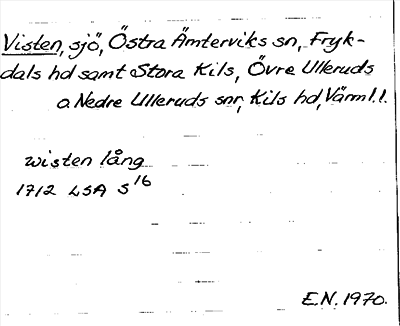 Visten, sjö, Östra Ämterviks sn, Fryk-
dals hd samt Stora Kils, Övre Ulleruds
o. Nedre Ulleruds snr, Kils hd, Värml. l.
wisten lång
1712 LSA S16
E.N. 1970.